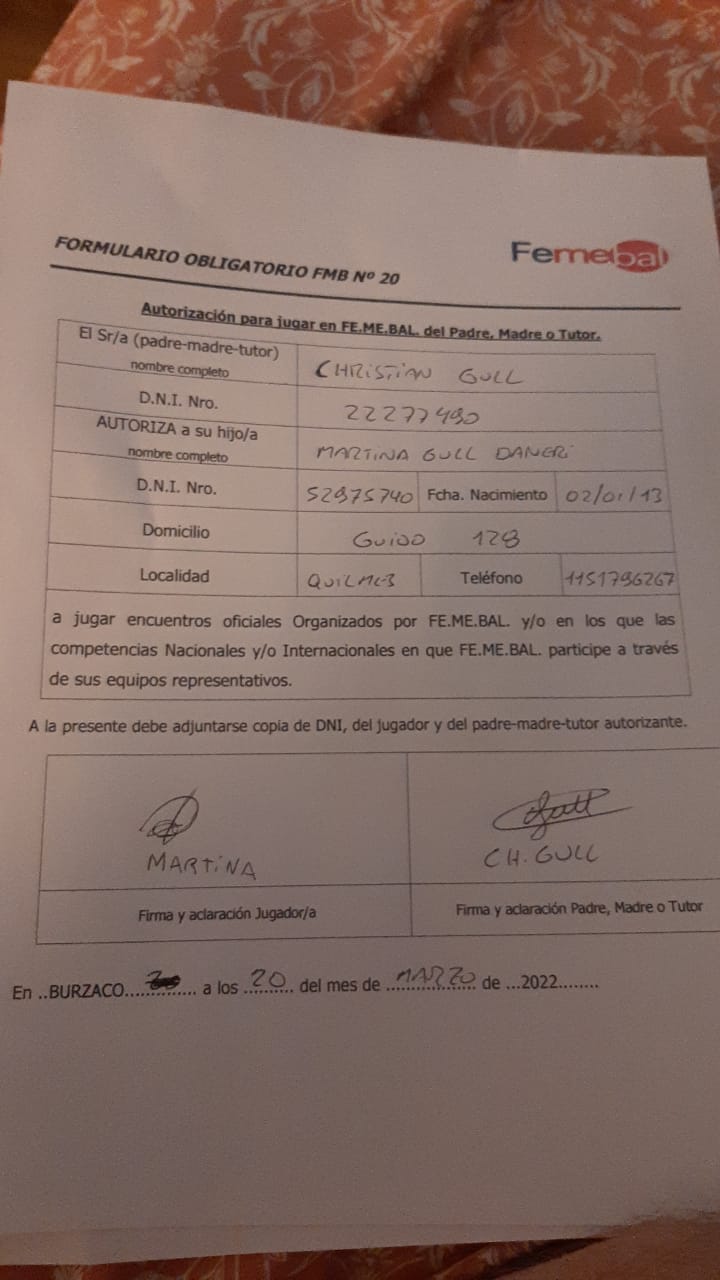 FORMULARIO OBLIGATORIO FMB Nº 20
Femebal
Autorización para jugar en FE.ME.BAL. del Padre, Madre o Tutor.
El Sr/a (padre-madre-tutor)
nombre completo
CHRISTIAN GULL
D.N.I. Nro.
22277490
AUTORIZA a su hijo/a
nombre completo
MARTINA GULL DANERI
D.N.I. Nro.
52975740
Fcha. Nacimiento
02/01/13
Domicilio
GUIDO 128
Localidad
QUILMES
Teléfono
1151796267
a jugar encuentros oficiales Organizados por FE.ME.BAL. y/o en los que las
competencias Nacionales y/o Internacionales en que FE.ME.BAL. participe a través
de sus equipos representativos.
A la presente debe adjuntarse copia de DNI, del jugador y del padre-madre-tutor autorizante.
MARTINA
CH. GULL
Firma y aclaración Jugador/a
Firma y aclaración Padre, Madre o Tutor
En ..BURZACO.............. a los ..20.. del mes de ..MARZO.. de ...2022........